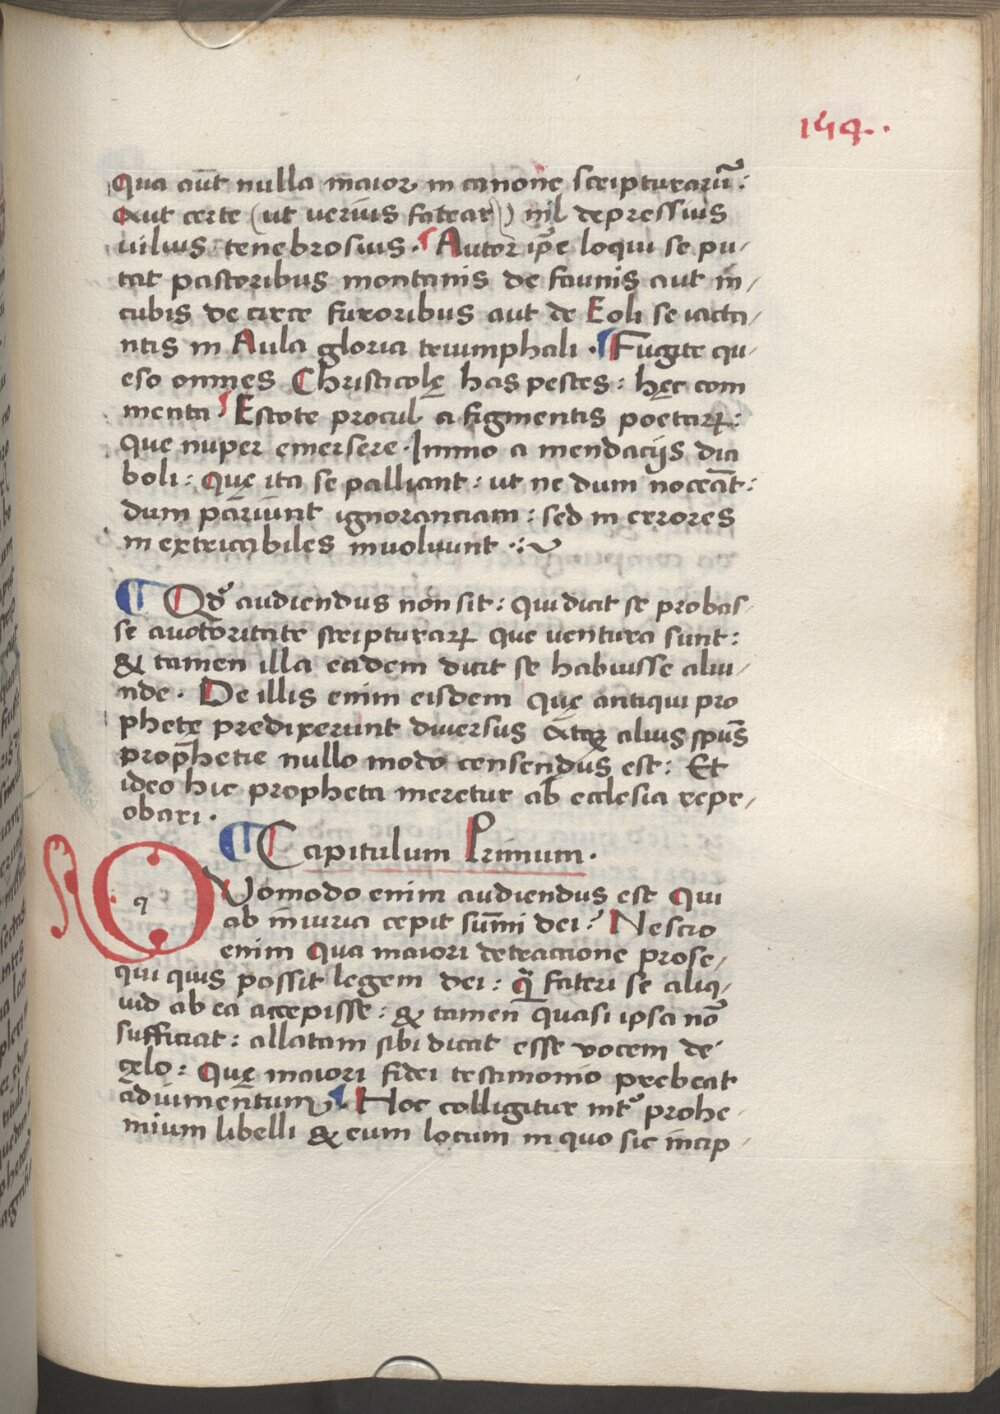 154.
Qua aūt nulla maior in canone scripturarū:
Aut certe (ut uerius fatear) nil depressius
uilius tenebrosius. Autor ip̄e loqui se pu-
tat pastoribus montanis de faunis aut in-
cubis de circe furoribus aut de Eoli se iacta-
ntis in Aula gloria triumphali. ¶ Fugite qu-
eso omnes Christicolę has pestes: hęc com
menta Estote procul a figmentis poetarꝝ:
que nuper emersere. Immo a mendacijs dia
boli: Quę ita se palliant: ut ne dum noceāt:
dum pariunt ignoranciam: sed in errores
in extricabiles inuoluunt
¶ Qd̛ audiendus non sit: Qui dicit se probas-
se auctoritate scripturarꝝ que uentura sunt:
& tamen illa eadem dicit se habuisse aliu-
nde. De illis enim eisdem Quę antiqui pro
phetę predixerunt diuersus atqꝫ alius spūs
prophetie nullo modo censendus est: Et
ideo hic propheta meretur ab ecclesia repr-
obari.
¶ Capitulum Primum.
QVomodo enim audiendus est Qui
ab iniuria cepit sum̄i dei? Nescio
enim Qua maiori detractione prose-
qui quis possit legem dei: q̄ fateri se aliq-
uid ab ea accepisse: & tamen quasi ipsa nō
sufficiat: allatam sibi dicat esse vocem de
cęlo: Quę maiori fidei testimonio prebeat
adiumentum. Hoc colligitur int̛ prohe-
mium libelli & eum locum in quo sic incip-